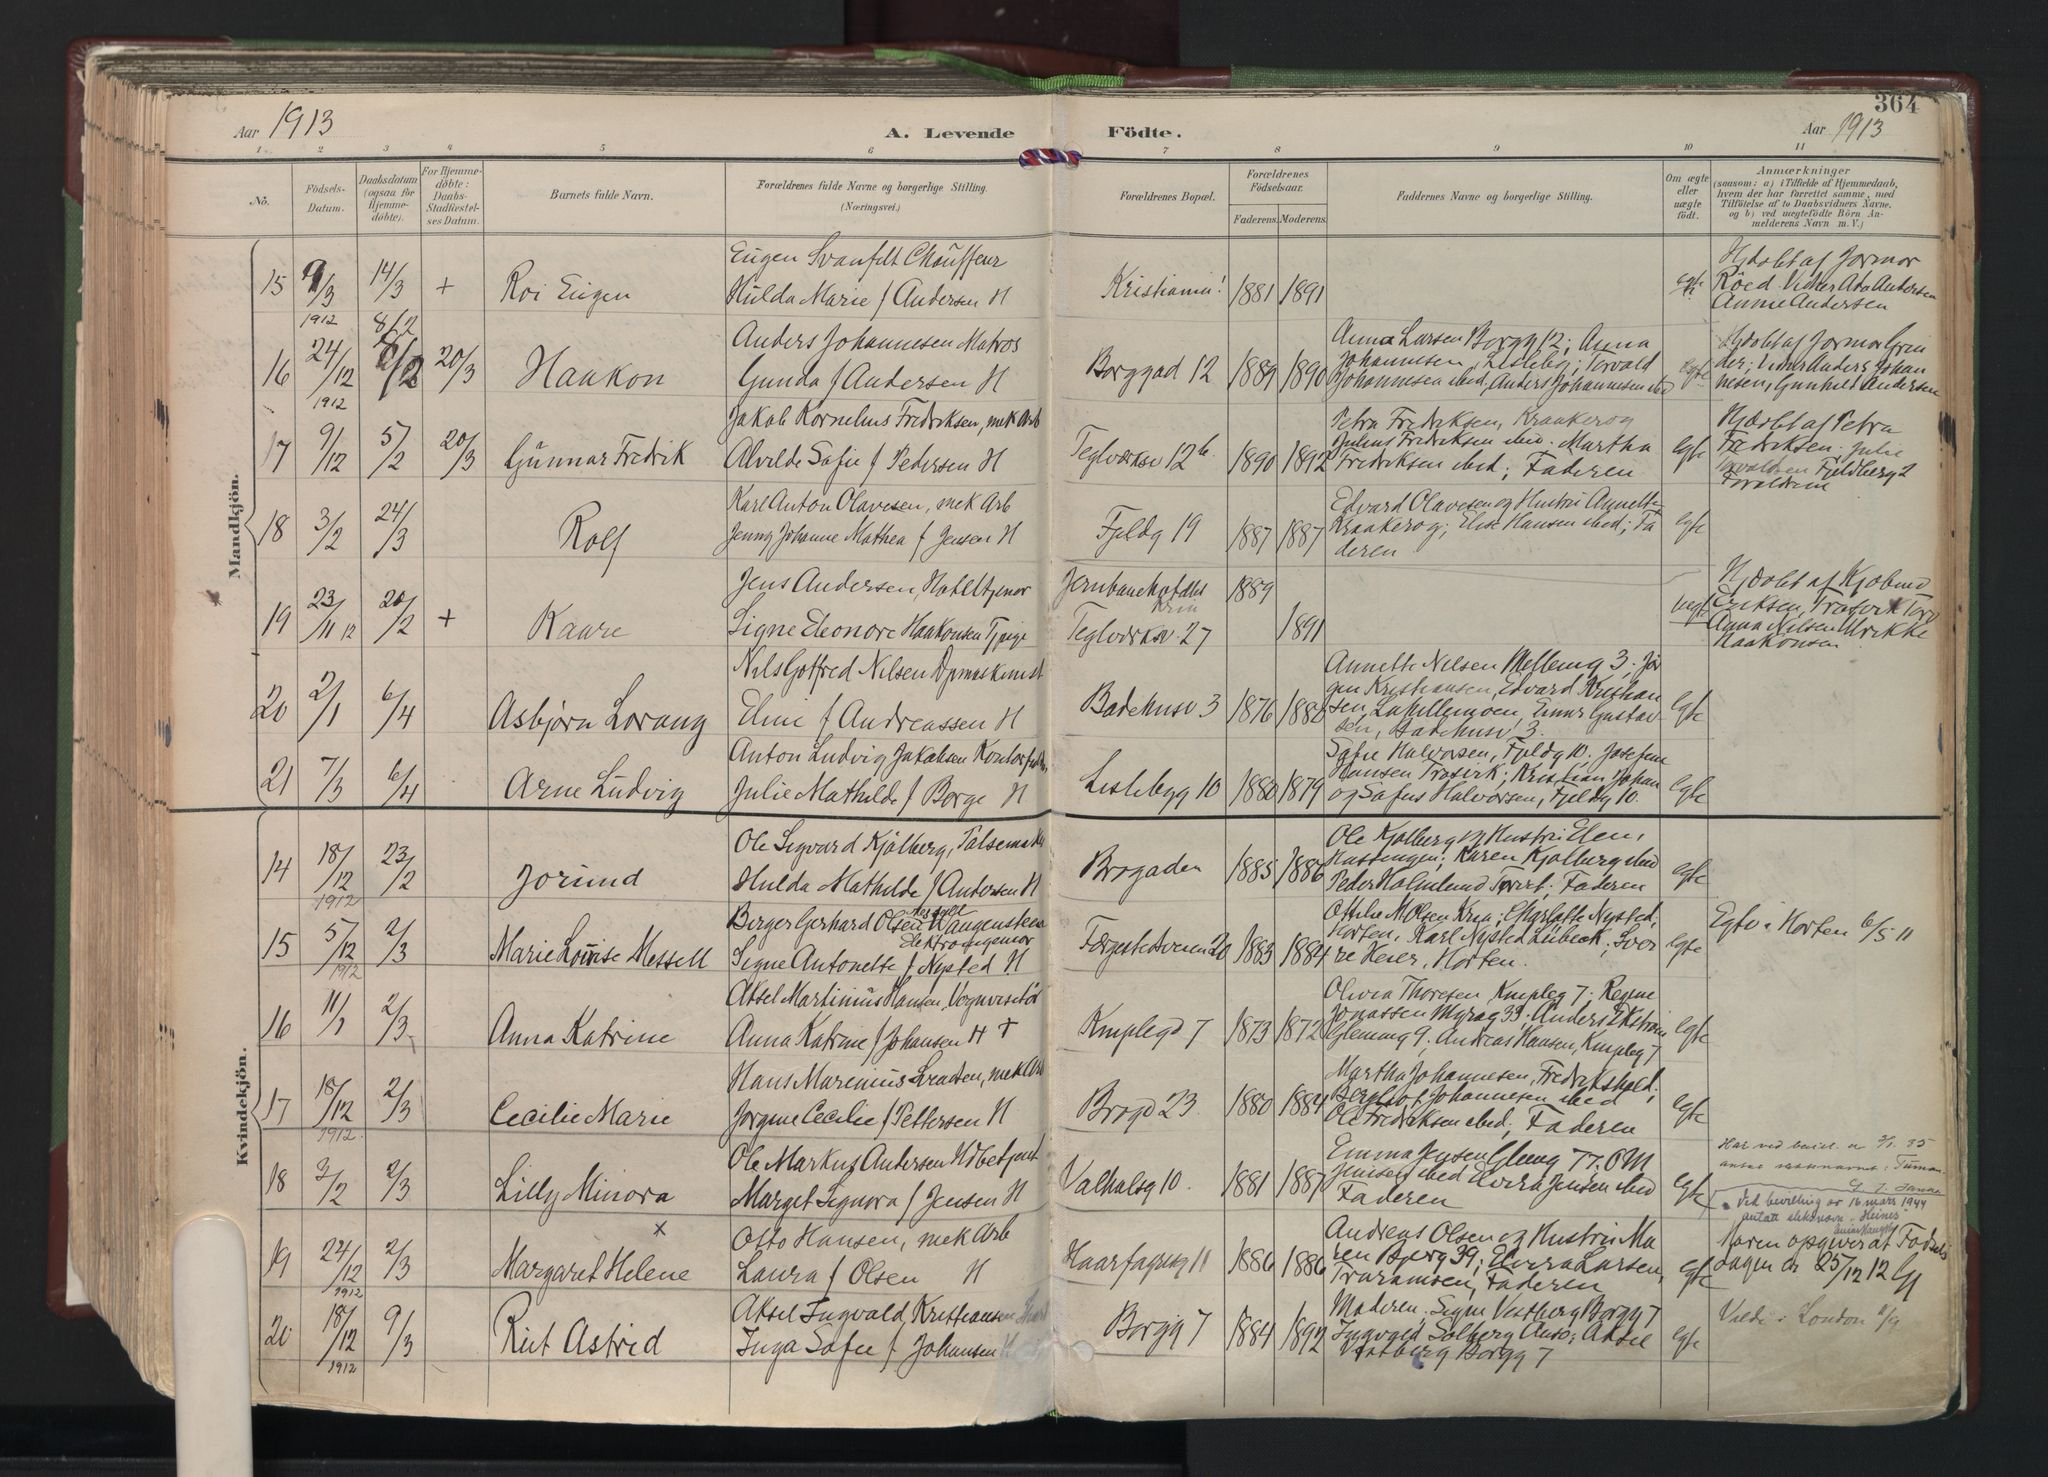 364
Aar 1913
A. Levende
Födte.
Aar 1913
1 2 3 4 5 6 7 8 9 10 11
No.
Födsels-
Datum.
Daabsdatum
(ogsaa for
Hjemme-
döbte).
For Hjemme-
döbte:
Daabs-
Stadfæstel-
ses Datum.
Barnets fulde Navn.
Forældrenes fulde Navne og borgerlige Stilling.
(Næringsvei.)
Forældrenes Bopæl.
Forældrenes
Födselsaar.
Faderens.
Moderens.
Faddernes Navne og borgerlige Stilling.
Om ægte
eller
uægte
födt.
Anmærkninger
(saasom: a) i Tilfælde af Hjemmedaab,
hvem der har forrettet samme, med
Tilföielse af to Daabsvidners Navne,
og b) ved uegtefödte Börn An-
melderens Navn m. V.)
Mandkjön.
15 9/3 14/3 + Roi Eugen
Eugen Svanfelt Chauffeur
Hulda Marie f Andersen H
Kristiania! 1881 1891
egte
Hjdöbt af Jormor
Röed. Vidner Ada Andersen
Annie Andersen
1912 8/2
16 24/12 20/3 Haakon
Anders Johannesen Matros
Gunda f Andersen H
Borggad 12 1889 1890
Anna Larsen Borgg 12; Anna
Johannesen, Lisleby; Torvald
Johannesen ibid, Anders Johannesen ibid
egte
Hjdöbt af Jormor Grin
der; Vidner Anders Johan
nesen, Gunhild Andersen
1912
17 9/12 5/2 20/3 Gunnar Fredrik
Jakob Kornelius Fredriksen, mek Arb
Alvilde Sofie f Pedersen H
Teglværksv 12b 1890 1892
Petra Fredriksen, Kraakerög
Julius Fredriksen ibid. Martha
Fredriksen ibid; Faderen
egte
Hjdöbt af Petra
Fredriksen, Julie
Fjeldberg 2
Foraldrene
18 3/2 24/3 Rolf
Karl Anton Olavesen, mek Arb
Jenny Johanne Mathea f Jensen H
Fjeldg 19 1887 1887
Edvard Olavesen og Hustru Annette
Kraakerög; Elise Hansen ibid; Fa
deren
egte
19 23/11 12 20/2 + Kaare
Jens Andersen, Hoteltjener
Signe Eleonore Haakonsen Tjpige
Jernbanehotellet
Kria
1889
Teglværksv 27
1891
uegte
Hjdöbt af Kjöbmd
Eriksen, Trosvik Torv
Anna Nilsen Ulrikke
Haakonsen
20 2/1 6/4 Asbjörn Lorang
Nils Gotfred Nilsen Dpmaskinist
Eline f Andreassen H
Badehusv 3 1876 1886
Annette Nilsen Mellemg 3. Jör
gen Kristiansen, Edvard Kristian
sen, Lahellemoen, Einar Gustav
sen, Badehusv 3.
egte
21 7/3 6/4 Arne Ludvig
Anton Ludvig Jakobsen
Julie Mathilde f Borge H
Lislebyg 10 1880 1879
Sofie Halvorsen, Fjeldg 10, Josefine
Hansen Trosvik; Kristian Johan
og Sofus Halvorsen, Fjeldg 10.
egte
Kvindekjön.
14 18/12 23/2 Jorund
1912
Ole Sigvard Kjölberg, Pölsemaker
Hulda Mathilde f Andersen H
Brogaden 1885 1886
Ole Kjölberg og Hustru Elen,
Hassengen; Karen Kjölberg ibid
Peder Holmlund Torvet; Faderen
egte
15 5/12 2/3 Marie Louise Messell
1912
Berger Gerhard Olsen Wangensteen
Elektroingeniör
Signe Antonette f Nysted H
Færgestedsveien 20 1883 1884
Ottilie M Olsen Kria; Charlotte Nysted,
Horten, Karl Nysted Lübeck; Sver
re Heier, Horten.
egte
Egtv i Horten 6/5 11
16 11/1 2/3 Anna Katrine
Aksel Martinius Hansen, Vognvisitör
Anna Katrine f Johansen H +
Kmplegd 7 1873 1872
Olivia Thoresen Kmpleg 7; Regine
Jonassen Myrag 39; Anders Ekström
Glemmg 9; Andreas Hansen, Kmpleg 7
egte
17 18/12 2/3 Cecilie Marie
1912
Hans Marenius Svendsen, mek Arb
Jörgine Cecilie f Pettersen H
Brogd 23 1880 1884
Martha Johannesen, Fredrikshald;
Bergliot Johannesen ibid
Ole Fredriksen ibid; Faderen
egte
18 3/2 2/3 Lilly Minora
Ole Markus Andersen Udbetjent
Marget Signora f Jensen H
Valhalsg 10. 1881 1887
Emma Jensen Glemg 77. O M
Jensen ibid Elvira Jensen ibid
Faderen
egte
Har ved bevill. a 3/1 35
Ved bevilling av 16 mars 1944
antatt slektsnavn "Heines"
19 24/12 2/3 Margaret Helene
×
1912
Otto Hansen, mek Arb
Laura f Olsen H
Haarfagreg 11 1886 1886
Andreas Olsen og Hustru Ma
ren Bjerg 39; Elvira Larsen,
Traramsen, Faderen
egte
Moren opgiver at Födsels
dagen er 25/12 12
20 18/12 9/3 Rut Astrid
1912
Aksel Ingvald Kristiansen
Inga Sofie f Johansen H
Borgg 7 1884 1892
Moderen; Signe Vestberg Borgg 7
Ingvald Solberg Auro; Aksel
Vestberg Borgg 7
egte
Viede i London